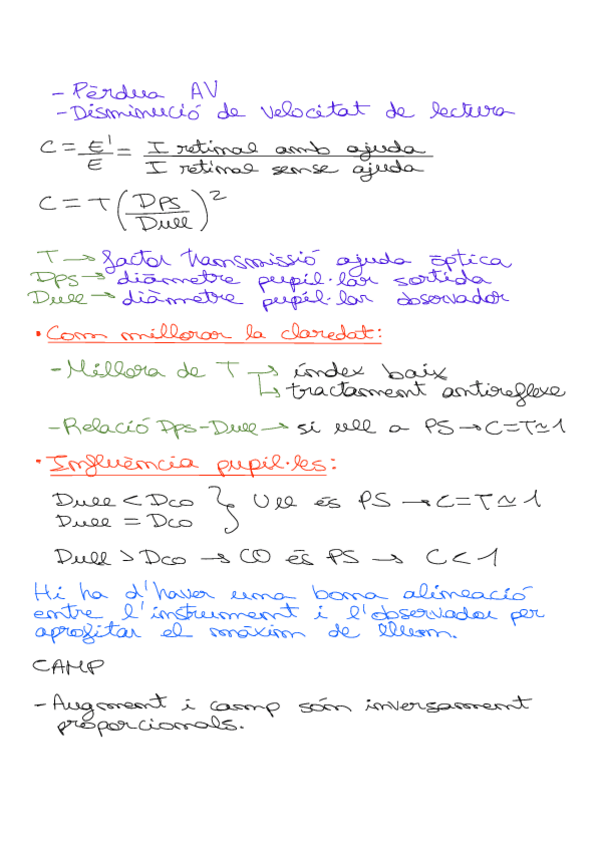 - Pèrdua AV
- Disminució de velocitat de lectura
C = E'/E = I retinal amb ajuda / I retinal sense ajuda
C = T (Dps/Dull)²
T → factor transmissió ajuda òptica
Dps → diàmetre pupil·lar sortida
Dull → diàmetre pupil·lar observador
• Com millorar la claredat:
- Millora de T → índex baix
↳ tractament antireflexe
- Relació Dps-Dull → si ull a PS → C=T≃1
• Influència pupil·les:
Dull < Dco } Ull és PS → C=T≃1
Dull = Dco
Dull > Dco → CO és PS → C<1
Hi ha d'haver una bona alineació
entre l'instrument i l'observador per
aprofitar el màxim de llum.
CAMP
- Augment i camp són inversament
proporcionals.